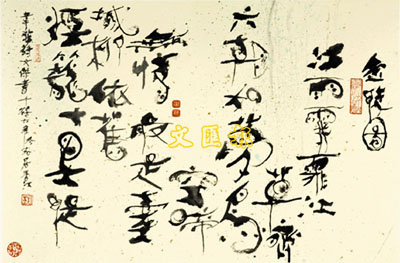 金陵圖
江雨霏霏江
草齊
六朝如夢鳥
空啼
無情最是臺
城柳依舊
煙籠十里堤
文匯報